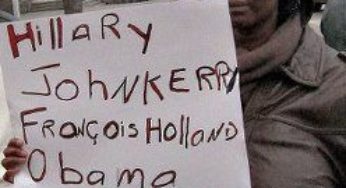 HiLLARY
JOHNKERRY
FRANÇOIS HOLLAND
Obama